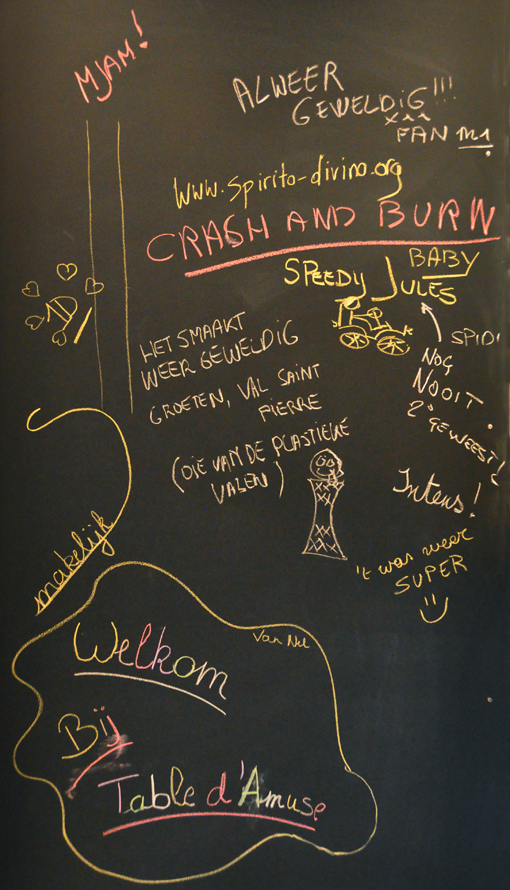 MJAM!
ALWEER
GEWELDIG!!!
XAA
FAN
www.spirito-divino.org
CRASH AND BURN
SPEEDY
BABY
JULES
1D
HET SMAAKT
WEER GEWELDIG
GROETEN, VAL SAINT
PIERRE
(DIE VAN DE PLASTIEKE
VALEN)
SPIDI
NOG
NOOIT
GEWEEST!
Intens!
't was weer
SUPER
makelijk
Van Nel
Welkom
Bij
Table d'Amuse